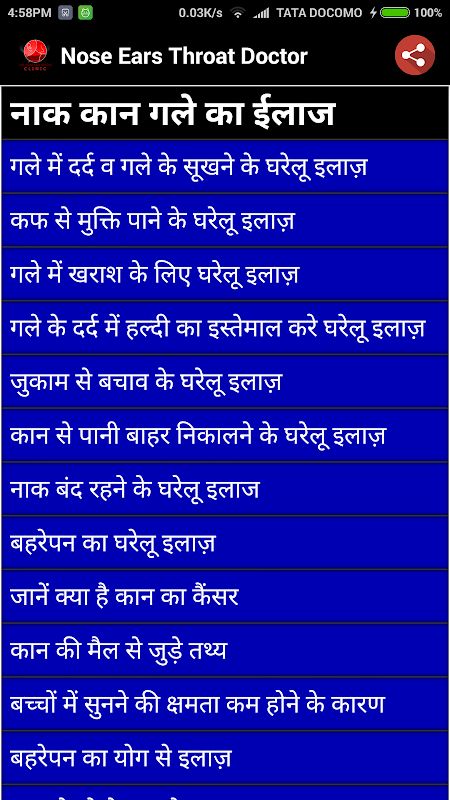 4:58PM 0.03K/s TATA DOCOMO 100%
CLINIC
Nose Ears Throat Doctor
नाक कान गले का ईलाज
गले में दर्द व गले के सूखने के घरेलू इलाज़
कफ से मुक्ति पाने के घरेलू इलाज़
गले में खराश के लिए घरेलू इलाज़
गले के दर्द में हल्दी का इस्तेमाल करे घरेलू इलाज़
जुकाम से बचाव के घरेलू इलाज़
कान से पानी बाहर निकालने के घरेलू इलाज़
नाक बंद रहने के घरेलू इलाज
बहरेपन का घरेलू इलाज़
जानें क्या है कान का कैंसर
कान की मैल से जुड़े तथ्य
बच्चों में सुनने की क्षमता कम होने के कारण
बहरेपन का योग से इलाज़